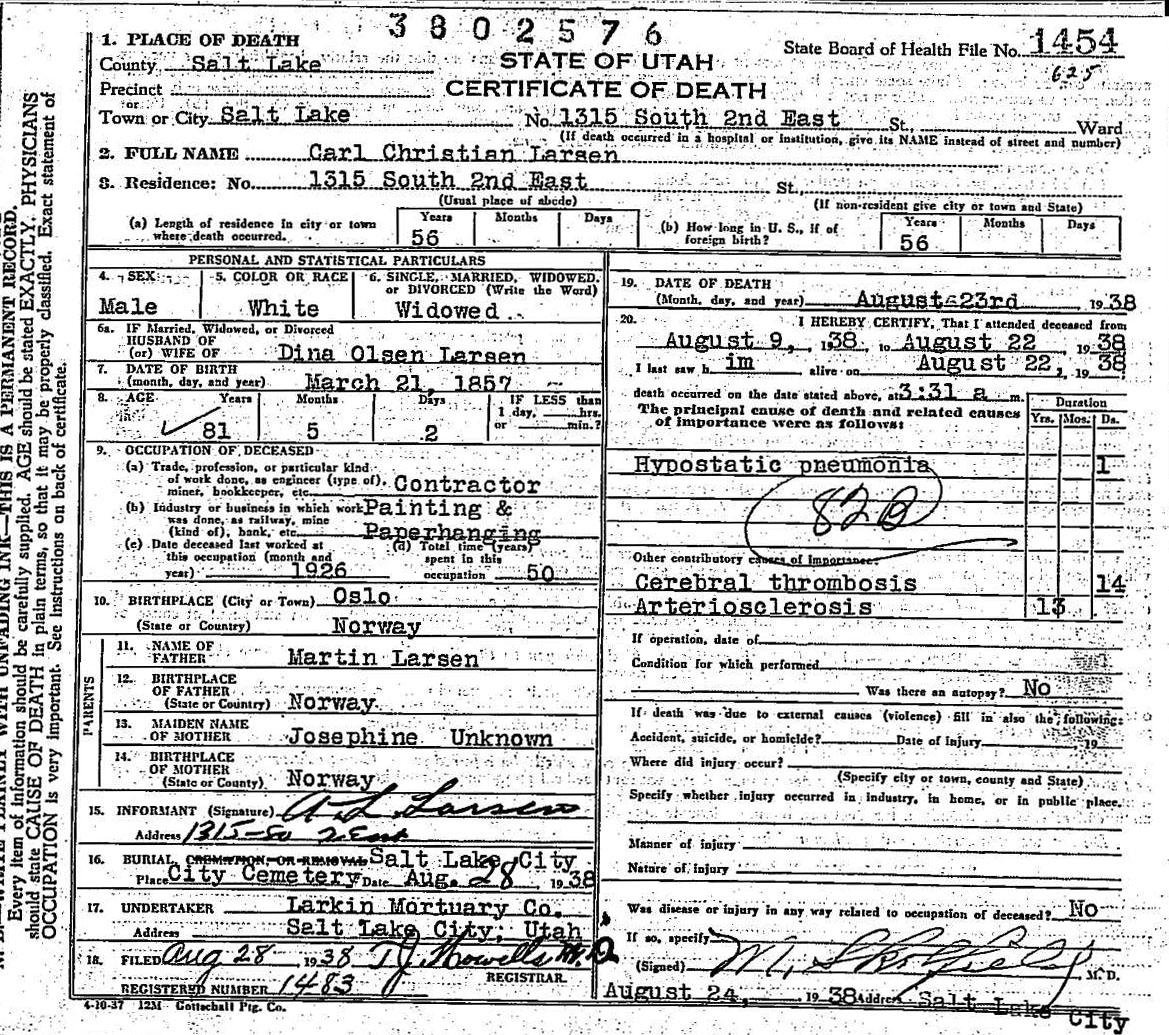 3802576
1. PLACE OF DEATH
State Board of Health File No. 1454
County Salt Lake
STATE OF UTAH
625
Precinct
CERTIFICATE OF DEATH
or
Town or City Salt Lake No. 1315 South 2nd East St., Ward
(If death occurred in a hospital or institution, give its NAME instead of street and number)
2. FULL NAME Carl Christian Larsen
3. Residence: No. 1315 South 2nd East St.,
(Usual place of abode)
(If non-resident give city or town and State)
(a) Length of residence in city or town where death occurred. Years 56 Months Days
(b) How long in U. S., if of foreign birth? Years 56 Months Days
PERSONAL AND STATISTICAL PARTICULARS
4. SEX Male
5. COLOR OR RACE White
6. SINGLE, MARRIED, WIDOWED, or DIVORCED (Write the Word) Widowed
6a. IF Married, Widowed, or Divorced
HUSBAND OF
(or) WIFE OF Dina Olsen Larsen
7. DATE OF BIRTH
(month, day, and year) March 21, 1857
8. AGE Years 81 Months 5 Days 2
IF LESS than 1 day, hrs. or min.?
9. OCCUPATION OF DECEASED
(a) Trade, profession, or particular kind
of work done, as engineer (type of),
miner, bookkeeper, etc. Contractor
(b) Industry or business in which work
was done, as railway, mine
(kind of), bank, etc. Painting & Paperhanging
(c) Date deceased last worked at
this occupation (month and
year) 1926
(d) Total time (years)
spent in this
occupation 50
10. BIRTHPLACE (City or Town) Oslo
(State or Country) Norway
PARENTS
11. NAME OF
FATHER Martin Larsen
12. BIRTHPLACE
OF FATHER
(State or Country) Norway
13. MAIDEN NAME
OF MOTHER Josephine Unknown
14. BIRTHPLACE
OF MOTHER
(State or County) Norway
15. INFORMANT (Signature) A L Larsen
Address 1315-So 2 East
16. BURIAL, CREMATION, OR REMOVAL Salt Lake City
Place City Cemetery Date Aug. 28 1938
17. UNDERTAKER Larkin Mortuary Co.
Address Salt Lake City, Utah
18. FILED Aug 28 1938 T J Howells M.D.
REGISTRAR.
REGISTERED NUMBER 1483
4-10-37 12M Gottschall Ptg. Co.
19. DATE OF DEATH
(Month, day, and year) August 23rd 1938
20. I HEREBY CERTIFY, That I attended deceased from
August 9, 1938, to August 22, 1938
I last saw him alive on August 22, 1938
death occurred on the date stated above, at 3:31 a m.
The principal cause of death and related causes
of importance were as follows:
Duration
Yrs. Mos. Ds.
Hypostatic pneumonia 1
82B
Other contributory causes of importance:
Cerebral thrombosis 14
Arteriosclerosis 13
If operation, date of
Condition for which performed
Was there an autopsy? No
If death was due to external causes (violence) fill in also the following:
Accident, suicide, or homicide? Date of injury 19
Where did injury occur?
(Specify city or town, county and State)
Specify whether injury occurred in industry, in home, or in public place.
Manner of injury
Nature of injury
Was disease or injury in any way related to occupation of deceased? No
If so, specify
(Signed) M. Skolfield M. D.
August 24, 1938 Address Salt Lake City
WITH UNFADING INK—THIS IS A PERMANENT RECORD.
Every item of information should be carefully supplied. AGE should be stated EXACTLY. PHYSICIANS
should state CAUSE OF DEATH in plain terms, so that it may be properly classified. Exact statement of
OCCUPATION is very important. See instructions on back of certificate.